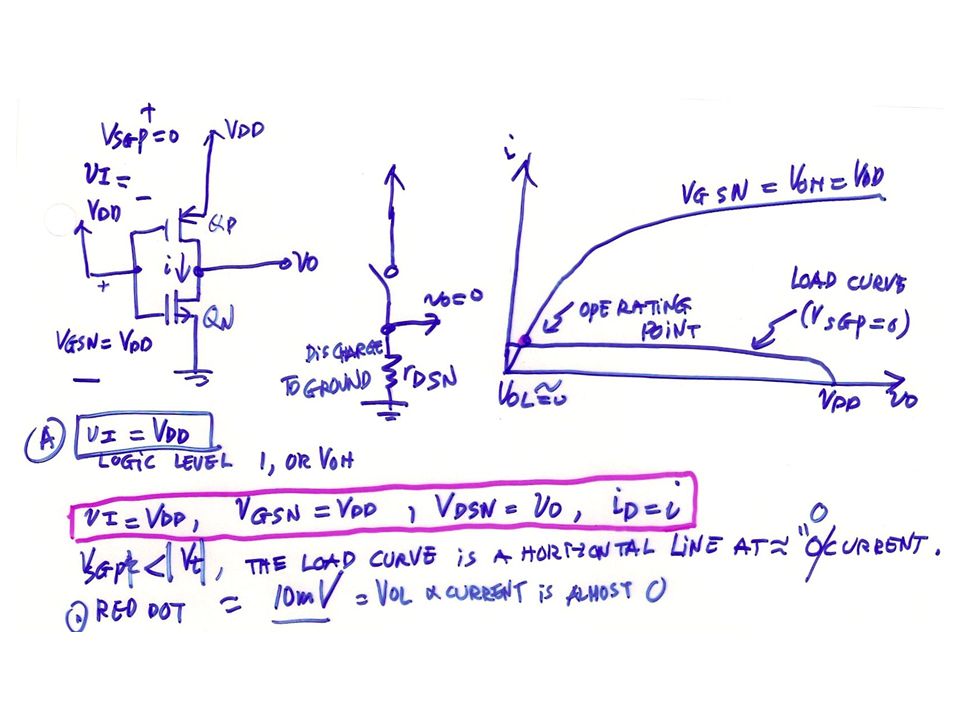 +
VSGP=0
VDD
VI =
−
VDD
QP
i
VO
+
QN
VGSN = VDD
−
vo=0
DISCHARGE
TO GROUND
rDSN
i
VGSN = VOH = VDD
LOAD CURVE
(VSGP=0)
OPERATING
POINT
VOL≅0
VDD
VO
A
VI = VDD
LOGIC LEVEL 1, OR VOH
VI = VDD, VGSN = VDD, VDSN = VO, iD = i
VSGP < |Vt|, THE LOAD CURVE IS A HORIZONTAL LINE AT ≈ "0 CURRENT.
0
RED DOT = 10mV = VOL & CURRENT IS ALMOST 0